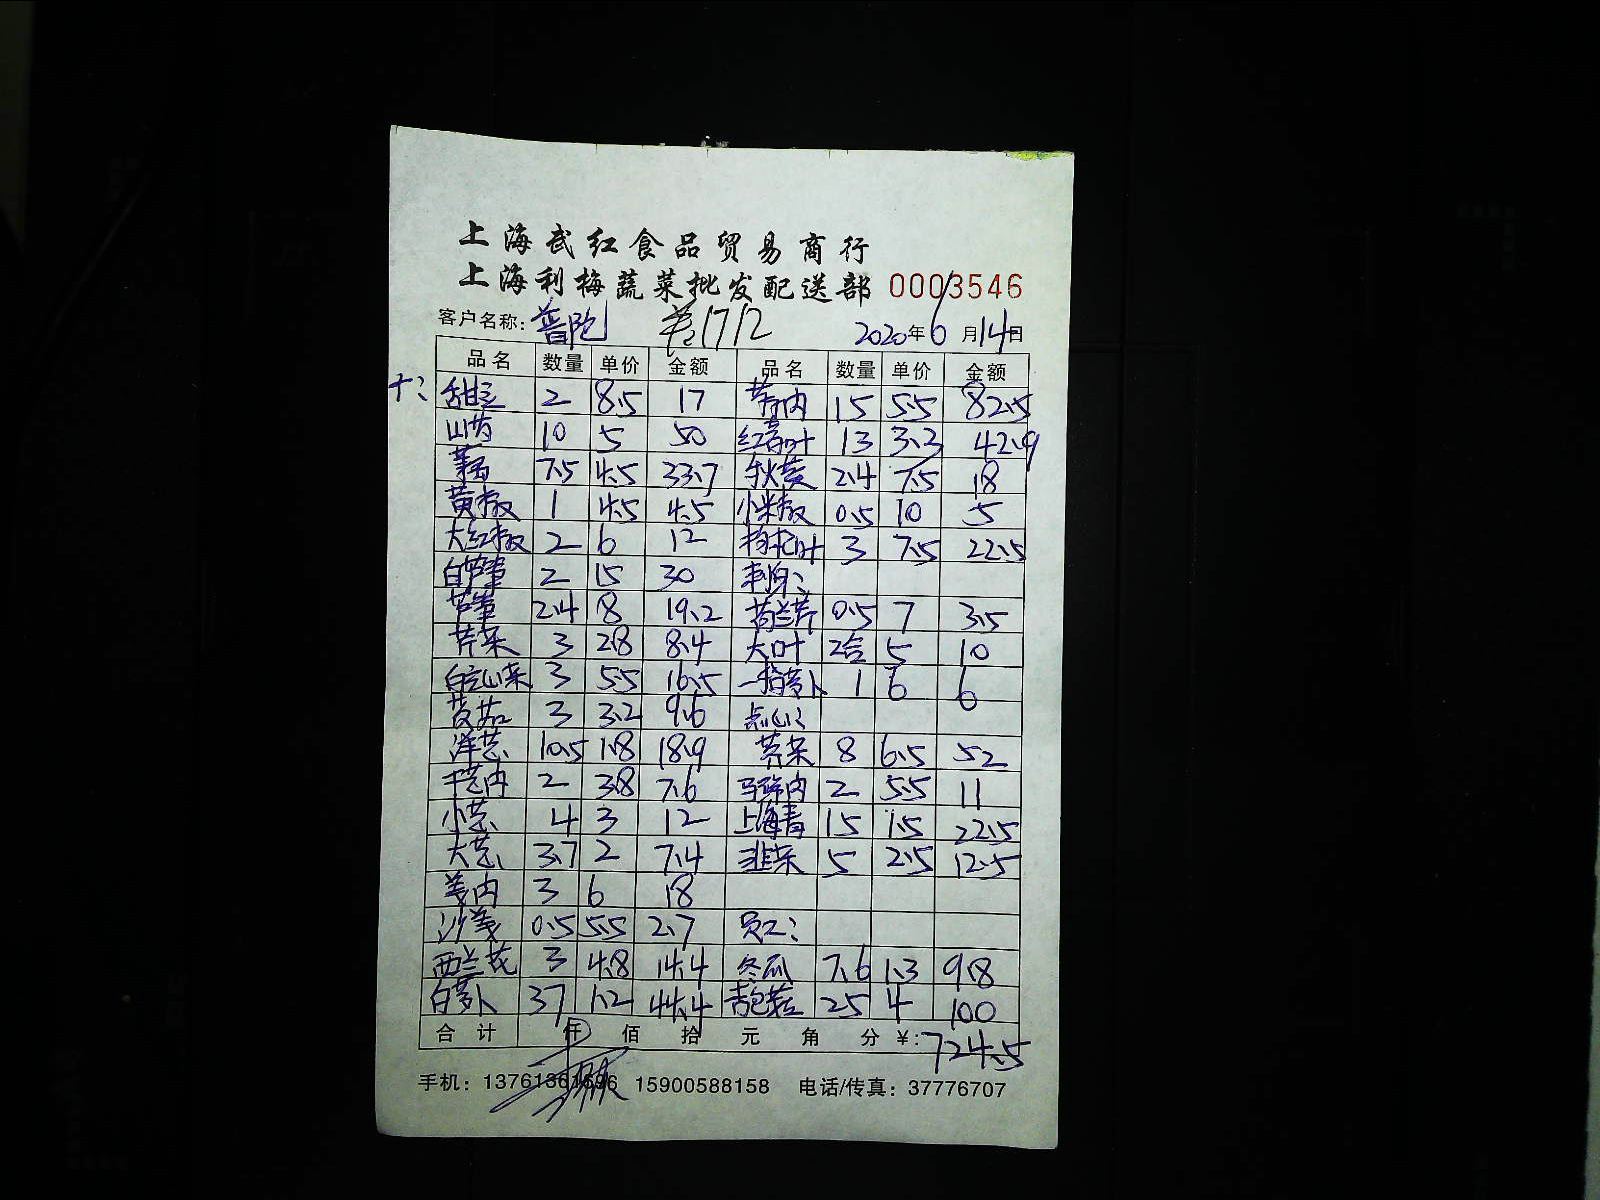 上海武红食品贸易商行
上海利梅蔬菜批发配送部 0003546
客户名称: 普陀 1712 2020年6月14日
品名 数量 单价 金额 品名 数量 单价 金额
甜豆 2 8.5 17 15 5.5 82.5
山药 10 5 50 叶 13 3.3 42.9
7.5 4.5 33.7 秋葵 2.4 7.5 18
黄椒 1 4.5 4.5 小米椒 0.5 10 5
大红椒 2 6 12 枸杞叶 3 7.5 22.5
白芦笋 2 15 30 刺身:
芦笋 2.4 8 19.2 荷兰芹 0.5 7 3.5
芹菜 3 2.8 8.4 大叶 2合 5 10
3 5.5 16.5 一指萝卜 1 6 6
3 3.2 9.6 点心:
洋葱 10.5 1.8 18.9 荠菜 8 6.5 52
干葱肉 2 3.8 7.6 马蹄肉 2 5.5 11
小葱 4 3 12 上海青 15 1.5 22.5
大葱 3.7 2 7.4 韭菜 5 2.5 12.5
姜肉 3 6 18
沙姜 0.5 5.5 2.7 员工:
西兰花 3 4.8 14.4 冬瓜 7.6 1.3 9.8
白萝卜 37 1.2 44.4 25 4 100
合计 仟 佰 拾 元 角 分 ¥: 724.5
手机: 13761361696 15900588158 电话/传真: 37776707